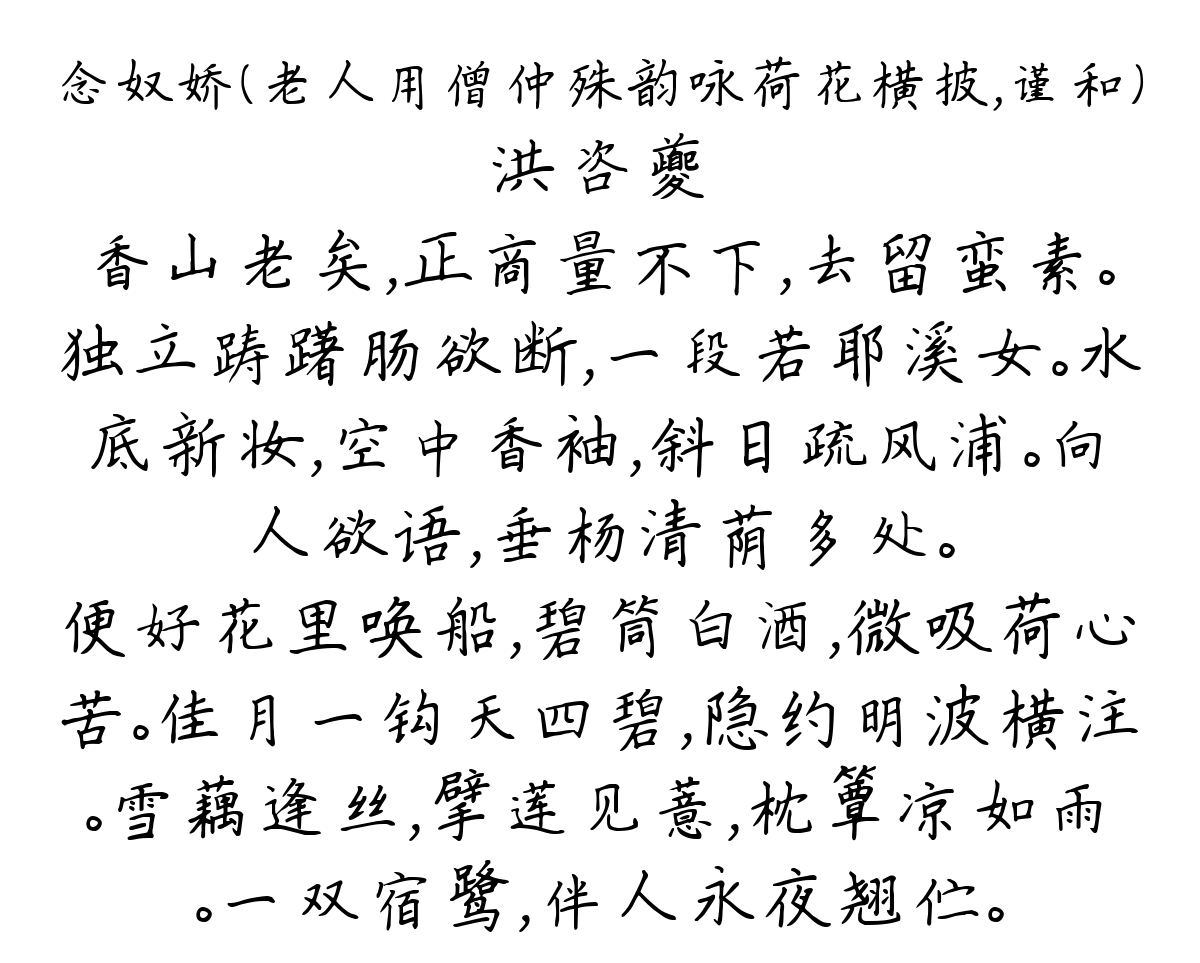 念奴娇(老人用僧仲殊韵咏荷花横披,谨和)
洪咨夔
香山老矣,正商量不下,去留蛮素。
独立踌躇肠欲断,一段若耶溪女。水
底新妆,空中香袖,斜日疏风浦。向
人欲语,垂杨清荫多处。
便好花里唤船,碧筒白酒,微吸荷心
苦。佳月一钩天四碧,隐约明波横注
。雪藕逢丝,擘莲见薏,枕簟凉如雨
。一双宿鹭,伴人永夜翘伫。